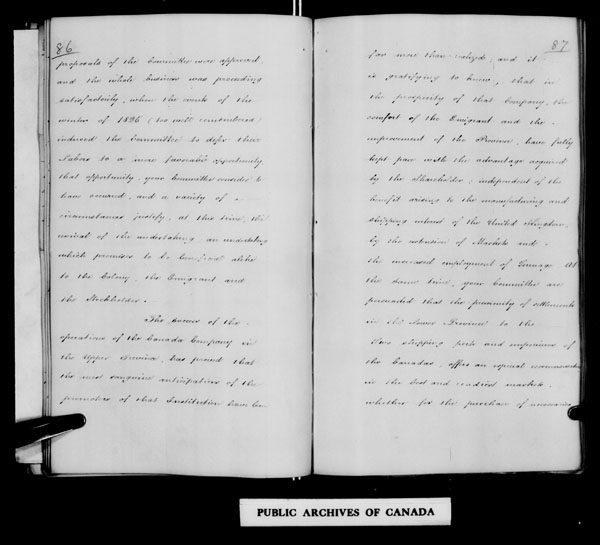 86
proposals of the Committee were approved
and the whole business was proceeding
satisfactorily, when the events of the
winter of 1826 (too well remembered)
induced the Committee to defer their
Labors to a more favorable opportunity
that opportunity, your Committee consider to
have occurred, and a variety of
circumstances justify, at this time, the
revival of the undertaking, an undertaking
which promises to be beneficial alike
to the Colony, the Emigrant and
the Stockholder.
The success of the
operations of the Canada Company in
the Upper Province, has proved that
the most sanguine anticipations of the
promoters of that Institution have been
87
far more than realized, and it
is gratifying to know, that in
the prosperity of that Company, the
comfort of the Emigrant and the
improvement of the Province, have fully
kept pace with the advantage acquired
by the Shareholder; independent of the
benefit arising to the manufacturing and
shipping interest of the United Kingdom,
by the extension of Markets and
the increased employment of Tonnage At
the same time, your Committee are
persuaded that the proximity of settlements
in the Lower Province to the
Two shipping ports and emporiums of
the Canadas, offers an especial recommendation
in the best and readiest markets,
whether for the purchase of necessaries
PUBLIC ARCHIVES OF CANADA